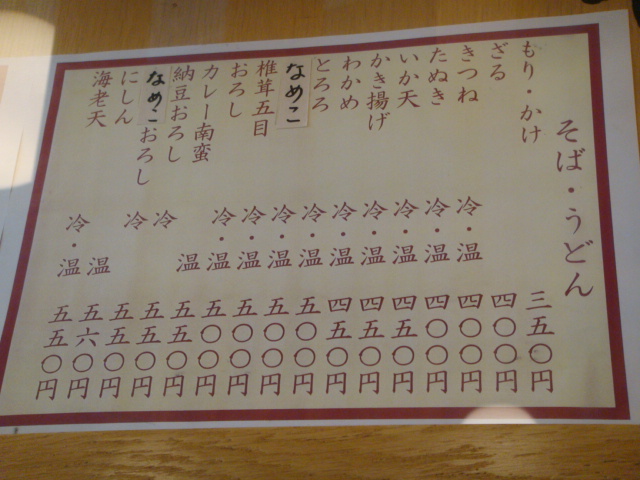 そば・うどん
もり・かけ 三五〇円
ざる 四〇〇円
きつね 冷・温 四〇〇円
たぬき 冷・温 四〇〇円
いか天 冷・温 四五〇円
かき揚げ 冷・温 四五〇円
わかめ 冷・温 四五〇円
とろろ 冷・温 五〇〇円
なめこ 冷・温 五〇〇円
椎茸五目 冷・温 五〇〇円
おろし 冷・温 五〇〇円
カレー南蛮 温 五五〇円
納豆おろし 冷 五五〇円
なめこおろし 冷 五五〇円
にしん 温 五六〇円
海老天 冷・温 五五〇円